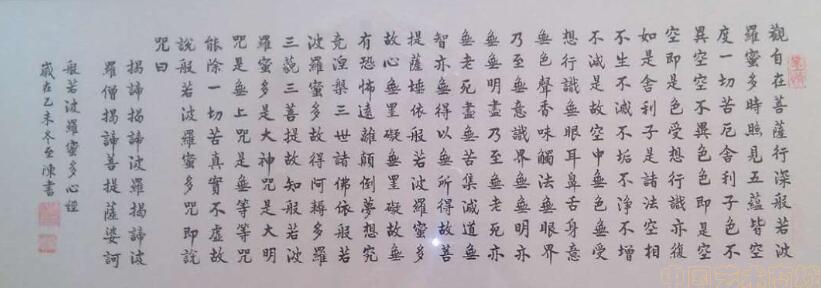 觀自在菩薩行深般若波
羅蜜多時照見五蘊皆空
度一切苦厄舍利子色不
異空空不異色色即是空
空即是色受想行識亦復
如是舍利子是諸法空相
不生不滅不垢不淨不增
不減是故空中無色無受
想行識無眼耳鼻舌身意
無色聲香味觸法無眼界
乃至無意識界無無明亦
無無明盡乃至無老死亦
無老死盡無苦集滅道無
智亦無得以無所得故菩
提薩埵依般若波羅蜜多
故心無罣礙無罣礙故無
有恐怖遠離顛倒夢想究
竟涅槃三世諸佛依般若
波羅蜜多故得阿耨多羅
三藐三菩提故知般若波
羅蜜多是大神咒是大明
咒是無上咒是無等等咒
能除一切苦真實不虛故
說般若波羅蜜多咒即說
咒曰
揭諦揭諦波羅揭諦波
羅僧揭諦菩提薩婆訶
般若波羅蜜多心經
歲在乙未冬至陳書
中国艺术